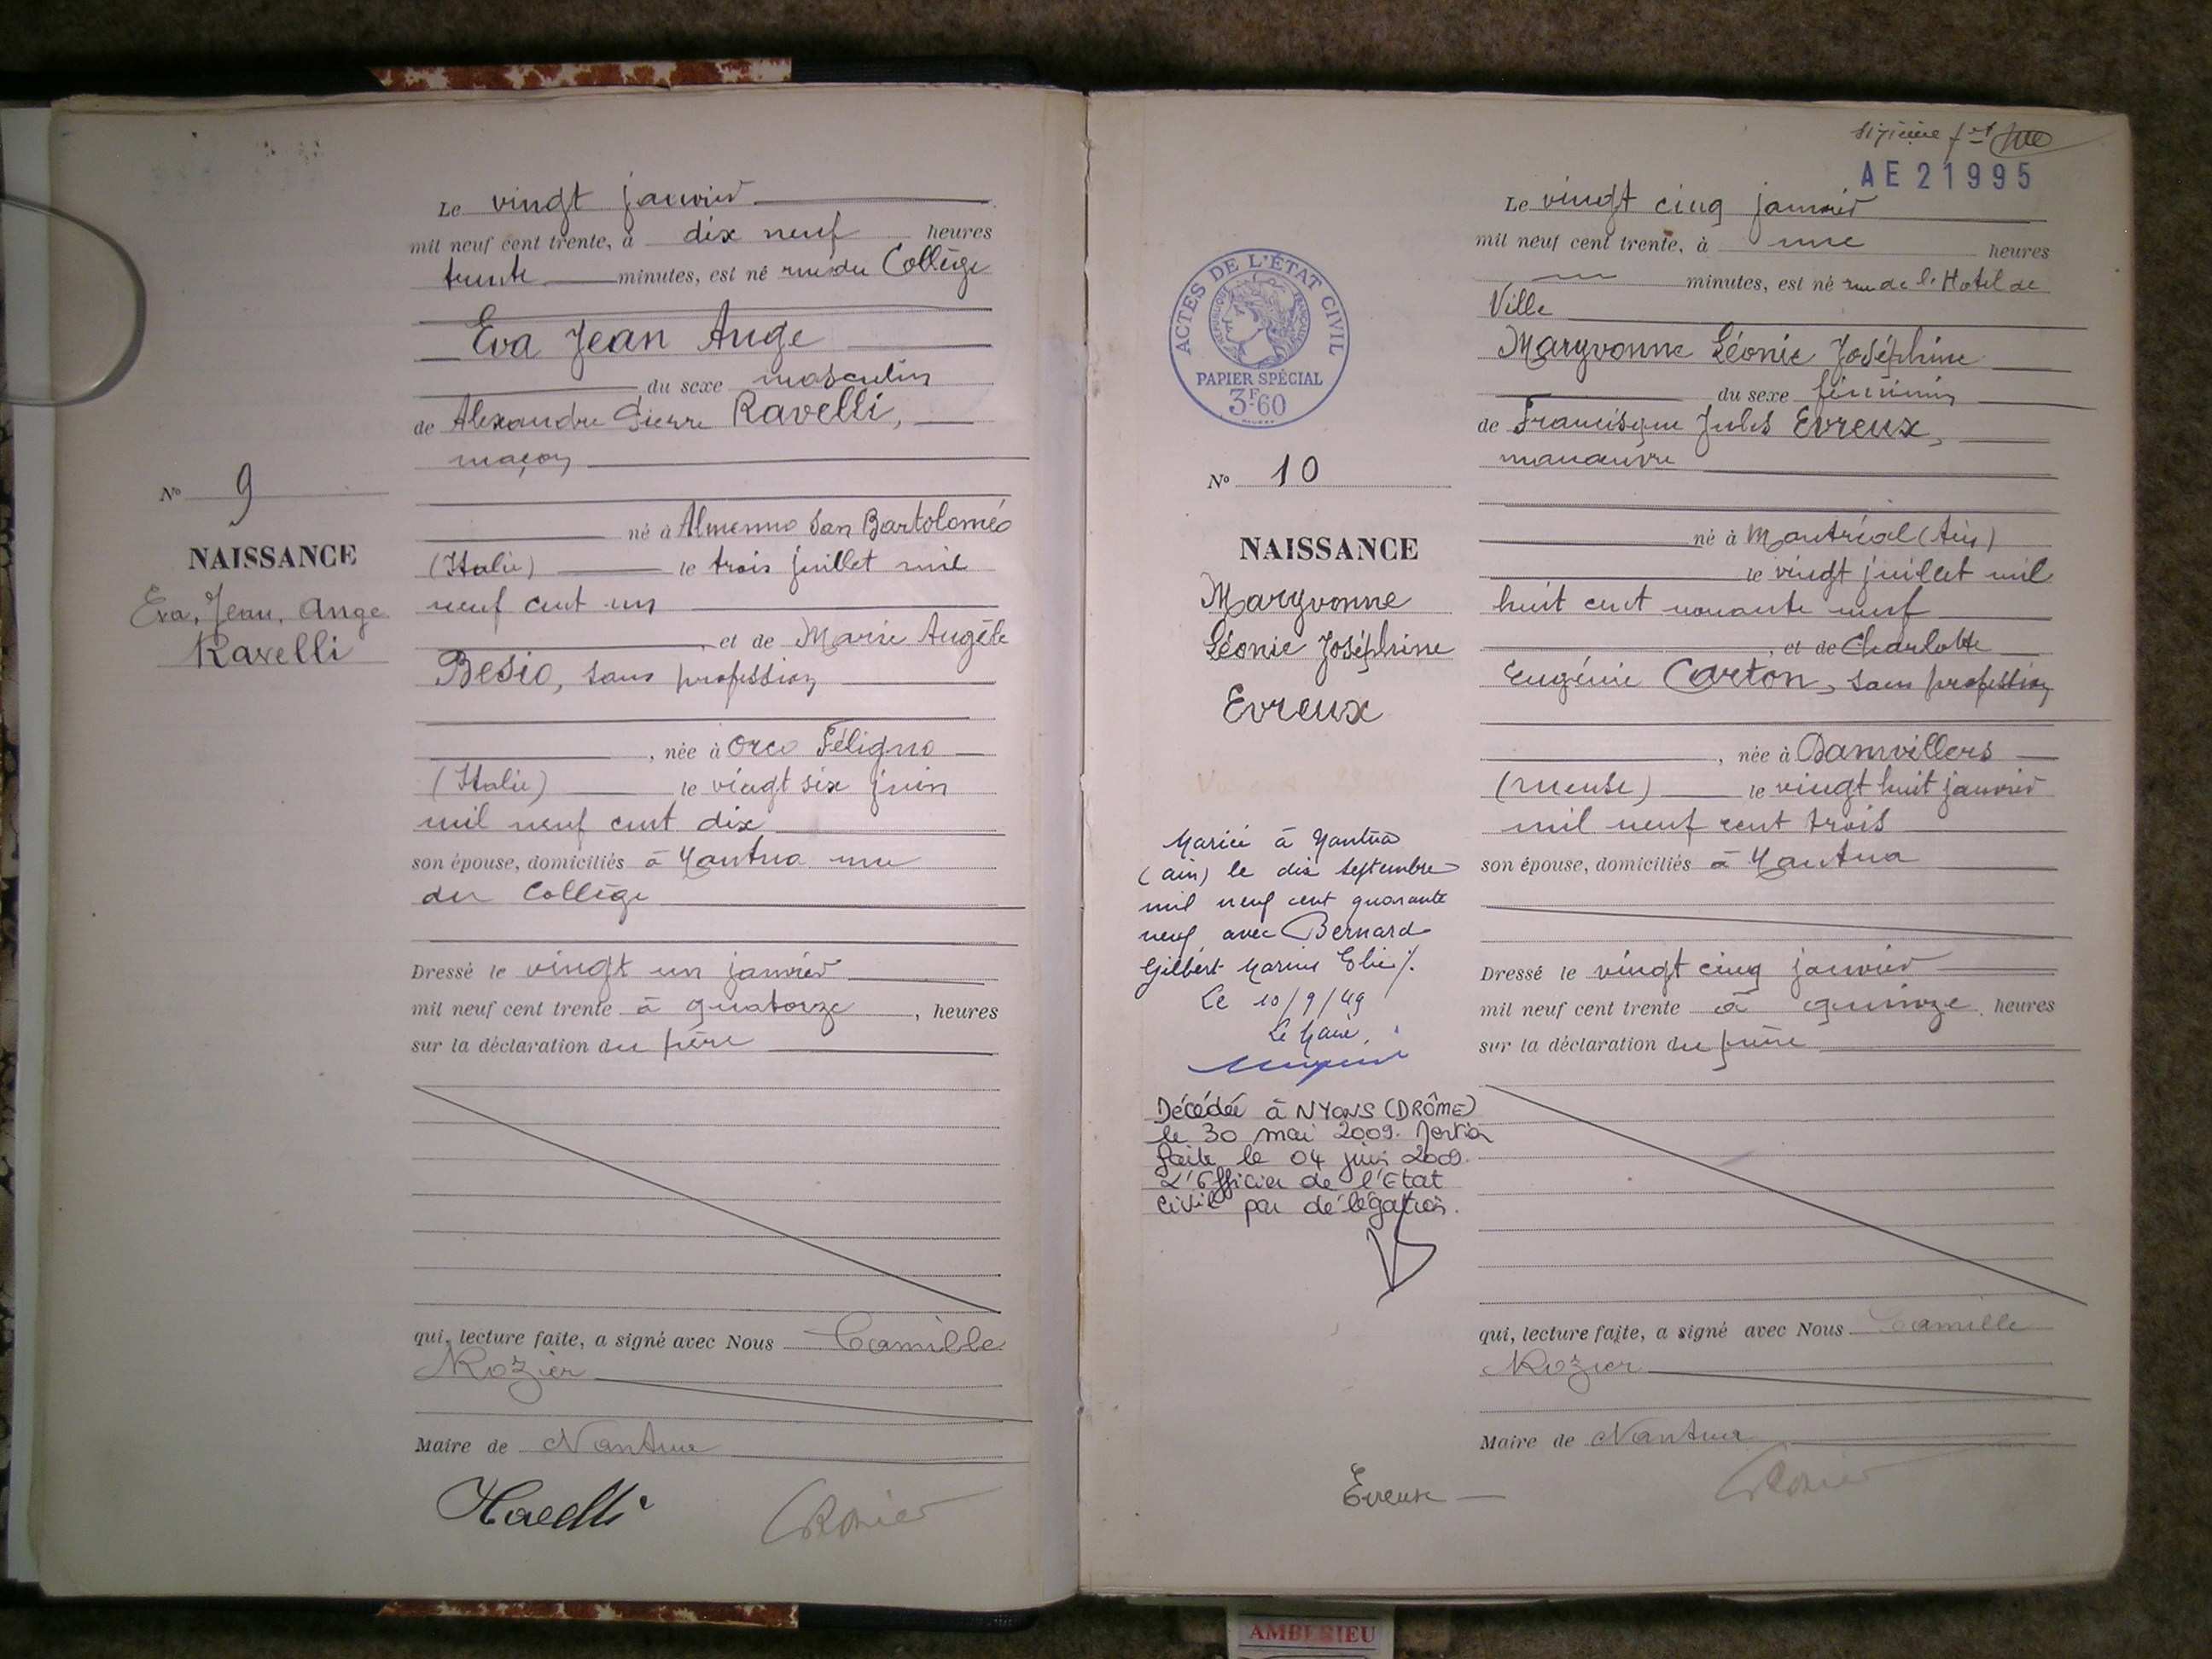 Le vingt janvier
mil neuf cent trente, à dix neuf heures
trente minutes, est né rue du Collège
Eva Jean Ange
du sexe masculin
de Alexandre Pierre Ravelli,
maçon
N° 9
NAISSANCE
Eva, Jean, Ange
Ravelli
né à Almenno San Bartoloméo
(Italie) le trois juillet mil
neuf cent un
, et de Marie Angèle
Besio, sans profession
, née à Orco Féligno
(Italie) le vingt six juin
mil neuf cent dix
son épouse, domiciliés à Nantua rue
du Collège
Dressé le vingt un janvier
mil neuf cent trente à quatorze, heures
sur la déclaration du père
qui, lecture faite, a signé avec Nous Camille
Rozier
Maire de Nantua
Ravelli
CRozier
AE 21995
Le vingt cinq janvier
mil neuf cent trente, à une heures
minutes, est né rue de l'Hotel de
Ville
Maryvonne Léonie Joséphine
du sexe féminin
de Francisque Jules Evreux,
manœuvre
ACTES DE L'ÉTAT CIVIL
RÉPUBLIQUE FRANÇAISE
PAPIER SPÉCIAL
3F.60
N° 10
NAISSANCE
Maryvonne
Léonie Joséphine
Evreux
né à Montréal (Ain)
le vingt juillet mil
huit cent nonante neuf
, et de Charlotte
Eugénie Carton, sans profession
, née à Damvillers
(Meuse) le vingt huit janvier
mil neuf cent trois
son épouse, domiciliés à Nantua
Dressé le vingt cinq janvier
mil neuf cent trente à quinze, heures
sur la déclaration du père
qui, lecture faite, a signé avec Nous Camille
Rozier
Maire de Nantua
Mariée à Nantua
(ain) le dix septembre
mil neuf cent quarante
neuf avec Bernard
Gilbert Marius Elie ./.
Le 10/9/49
Le Maire,
Décédée à NYONS (DRÔME)
le 30 mai 2009. Mention
faite le 04 juin 2009.
L'Officier de l'Etat
Civil par délégation.
Evreux
CRozier
AMBERIEU